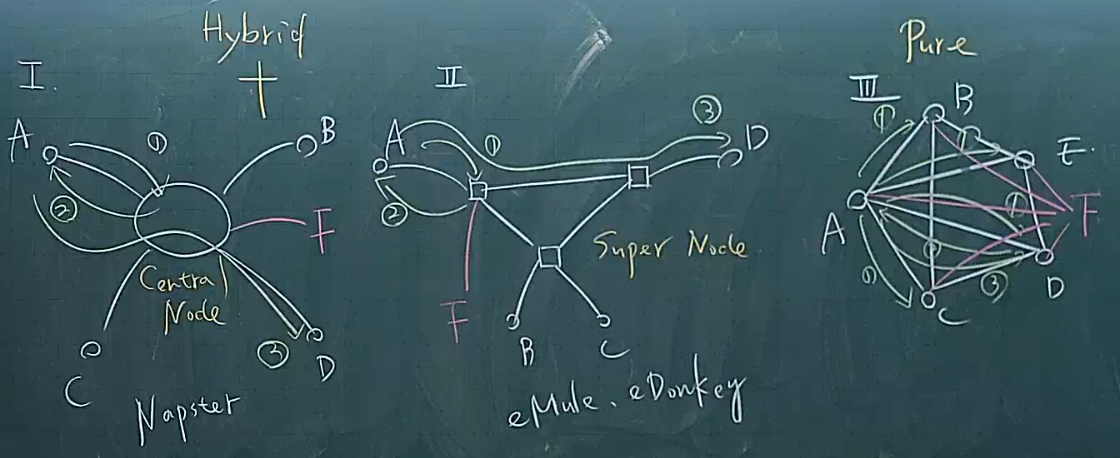 Hybrid
I.
A
①
B
②
F
Central
Node
C
③
D
Napster
II
A
①
③
D
②
Super Node
F
B
C
eMule、eDonkey
Pure
III
B
①
①
E.
①
F
A
②
①
③
D
C